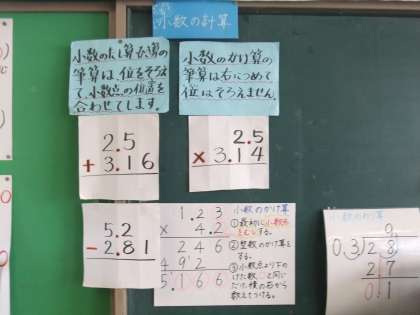 小数の計算
小数のたし算、ひき算の
筆算は、位をそろえ
て、小数点の位置を
合わせてします。
小数のかけ算の
筆算は右につめて
位はそろえません。
2.5
+ 3.16
2.5
× 3.14
5.2
- 2.81
1.23
× 4.2
246
492
5.166
小数のかけ算
①最初に小数点を
むしする。
②整数のかけ算を
する。
③小数点より下の
けた数と同じ
だけ、積の右から
数えてつける。
小数のわり算
0.3
2.8
2 7
0.1